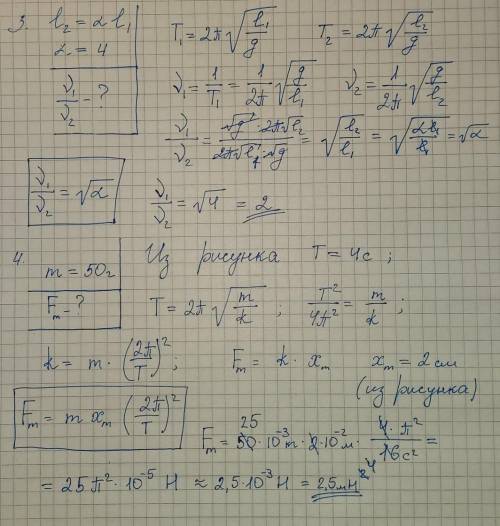 3. l₂ = αl₁
α = 4
ν₁/ν₂ - ?
T₁ = 2π√(l₁/g) T₂ = 2π√(l₂/g)
ν₁ = 1/T₁ = 1/2π √(g/l₁) ν₂ = 1/2π √(g/l₂)
ν₁/ν₂ = √g · 2π√l₂ / 2π√l₁ · √g = √(l₂/l₁) = √(αl₁/l₁) = √α
ν₁/ν₂ = √α ν₁/ν₂ = √4 = 2
4. m = 50г Из рисунка T = 4с ;
Fm - ? T = 2π√(m/k) ; T²/4π² = m/k ;
k = m · (2π/T)² ; Fm = k · xm xm = 2 см
(из рисунка)
Fm = m xm (2π/T)²
25
Fm = 50 · 10⁻³ т · 2 · 10⁻² м · 4 · π²/16 с² =
4 2
= 25 π² · 10⁻⁵ Н ≈ 2,5 · 10⁻³ Н = 2,5 мН